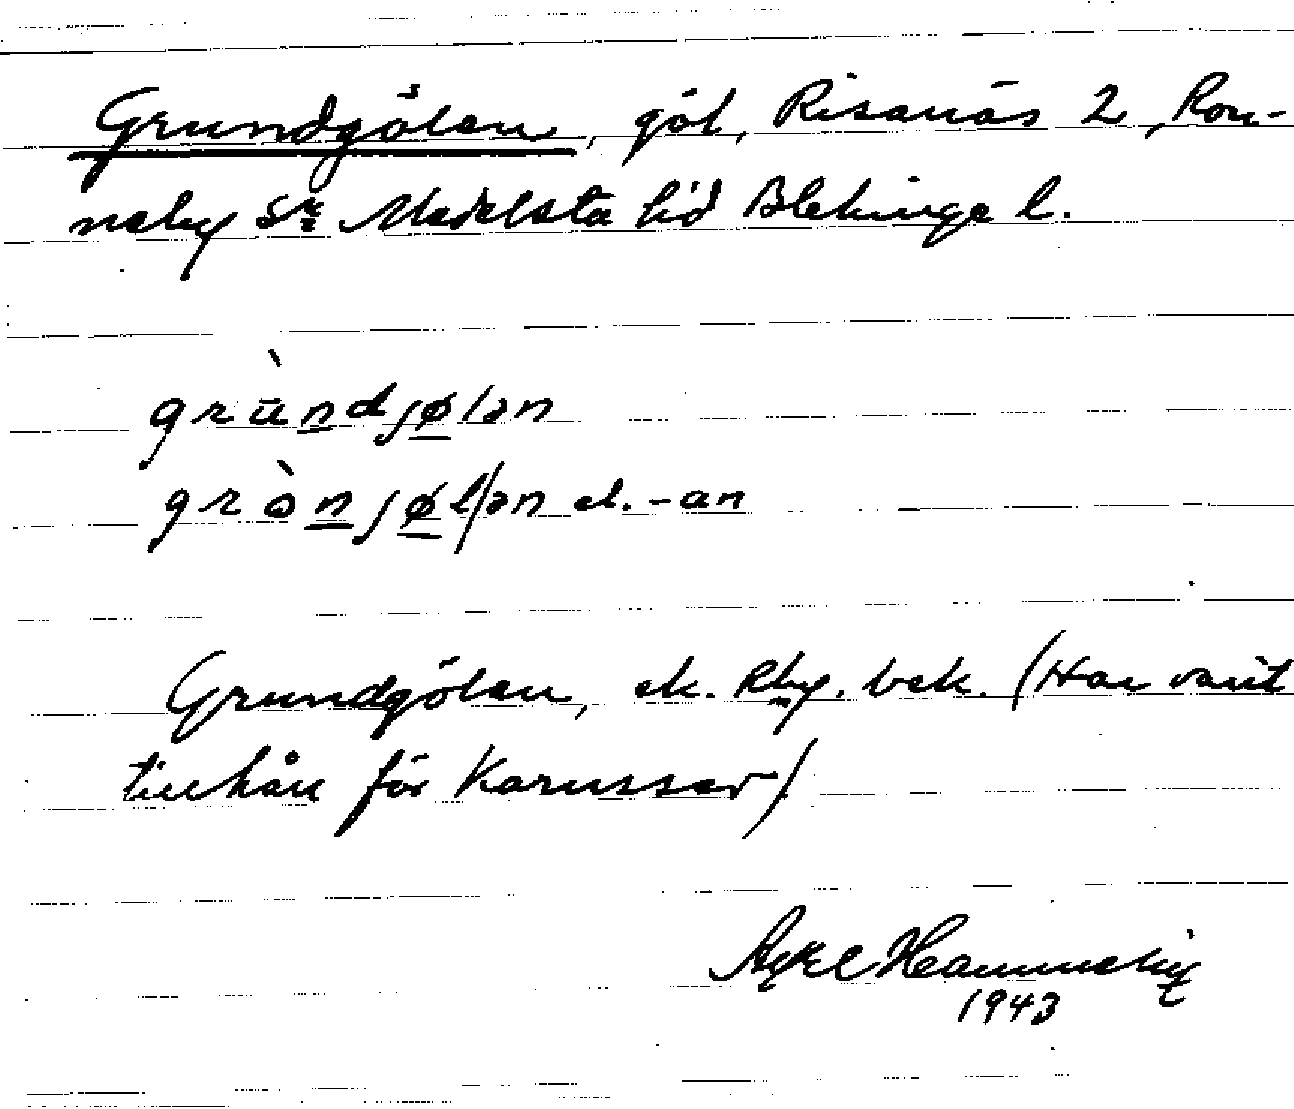 Grundgölen, göl, Risanäs 2, Ron-
neby Sn Medelsta hd Blekinge l.
grùndjølən
grònjøl/ən el. -an
Grundgölen, ek. Rby. bek. (Har varit
tillhåll för Karusser)
Axel Hammeby
1943